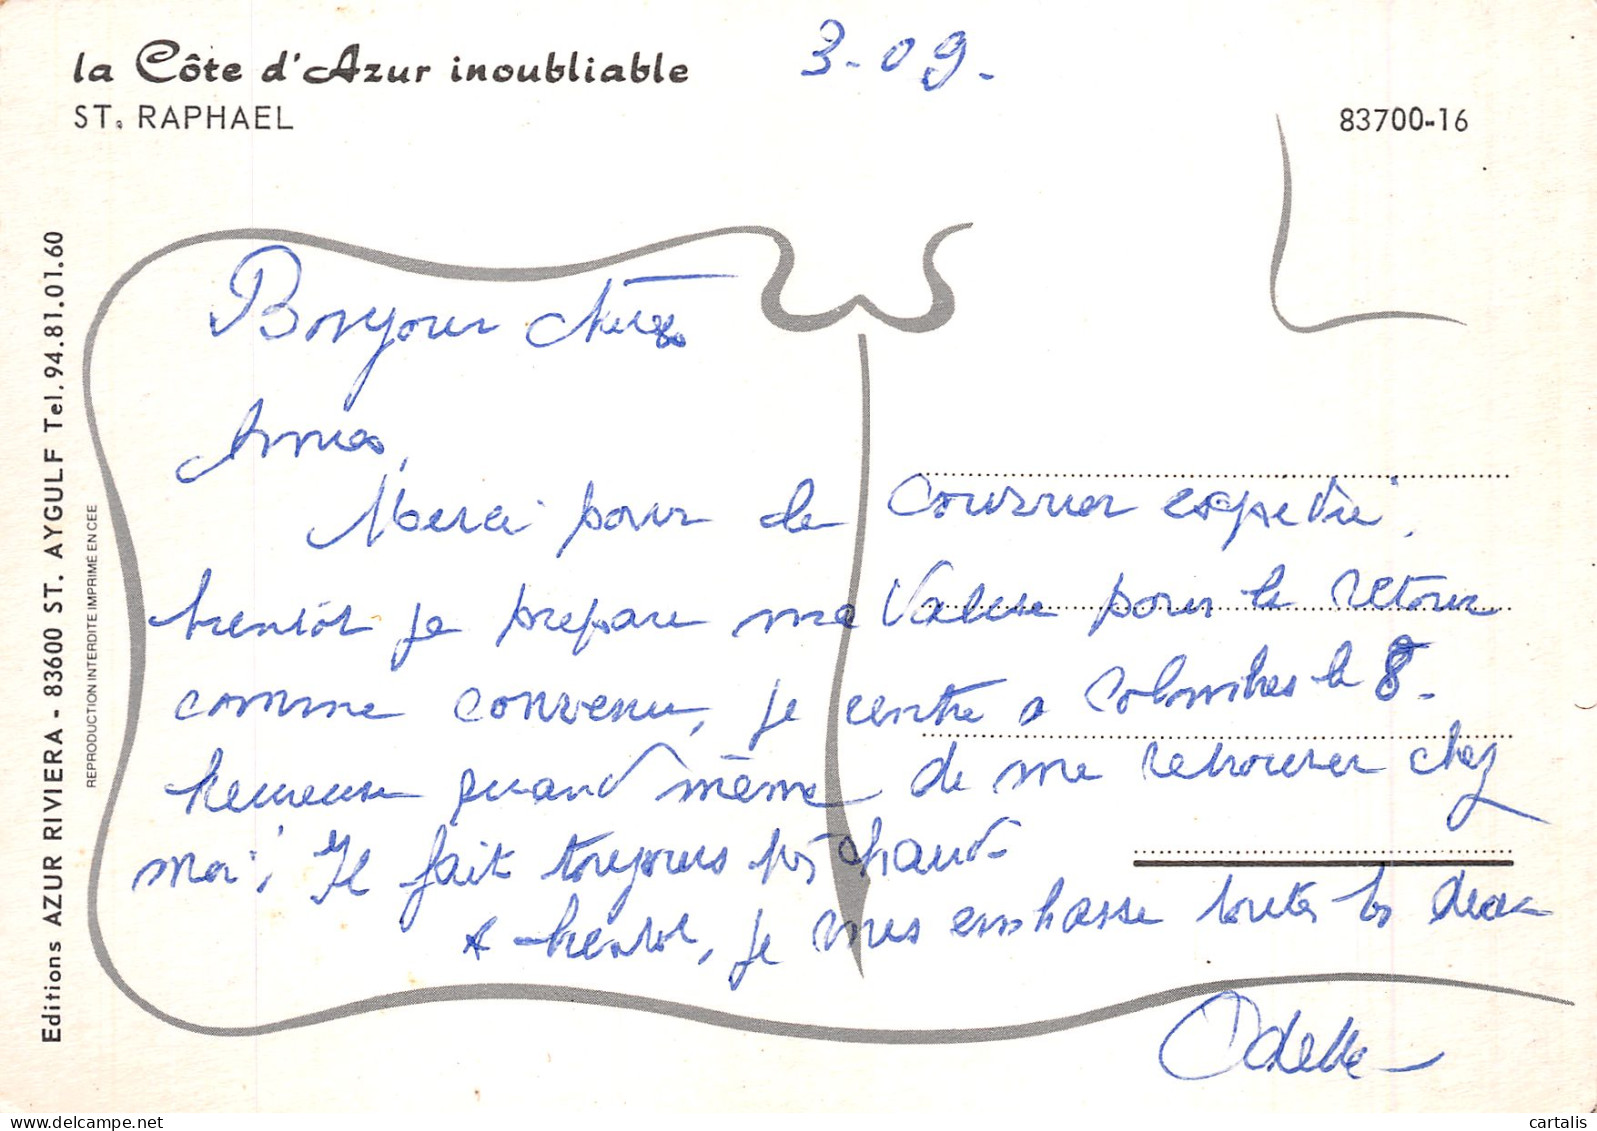 la Côte d'Azur inoubliable
ST. RAPHAEL
3-09-
83700-16
Editions AZUR RIVIERA - 83600 ST. AYGULF Tel. 94.81.01.60
REPRODUCTION INTERDITE IMPRIME EN CEE
Bonjour chères
Amies,
Merci pour le courrier expédié,
bientôt je prépare ma valise pour le retour
comme convenu, je rentre a Colombes le 8-
heureuse quand même de me retrouver chez
moi, Il fait toujours très chaud-
A bientot, je vous embrasse toutes les deux
Odette
cartalis